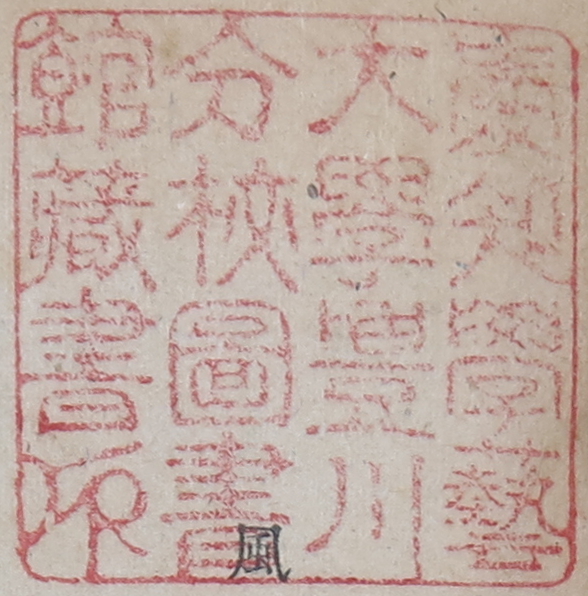 愛知學藝
大學豊川
分校圖書
館藏書印
風